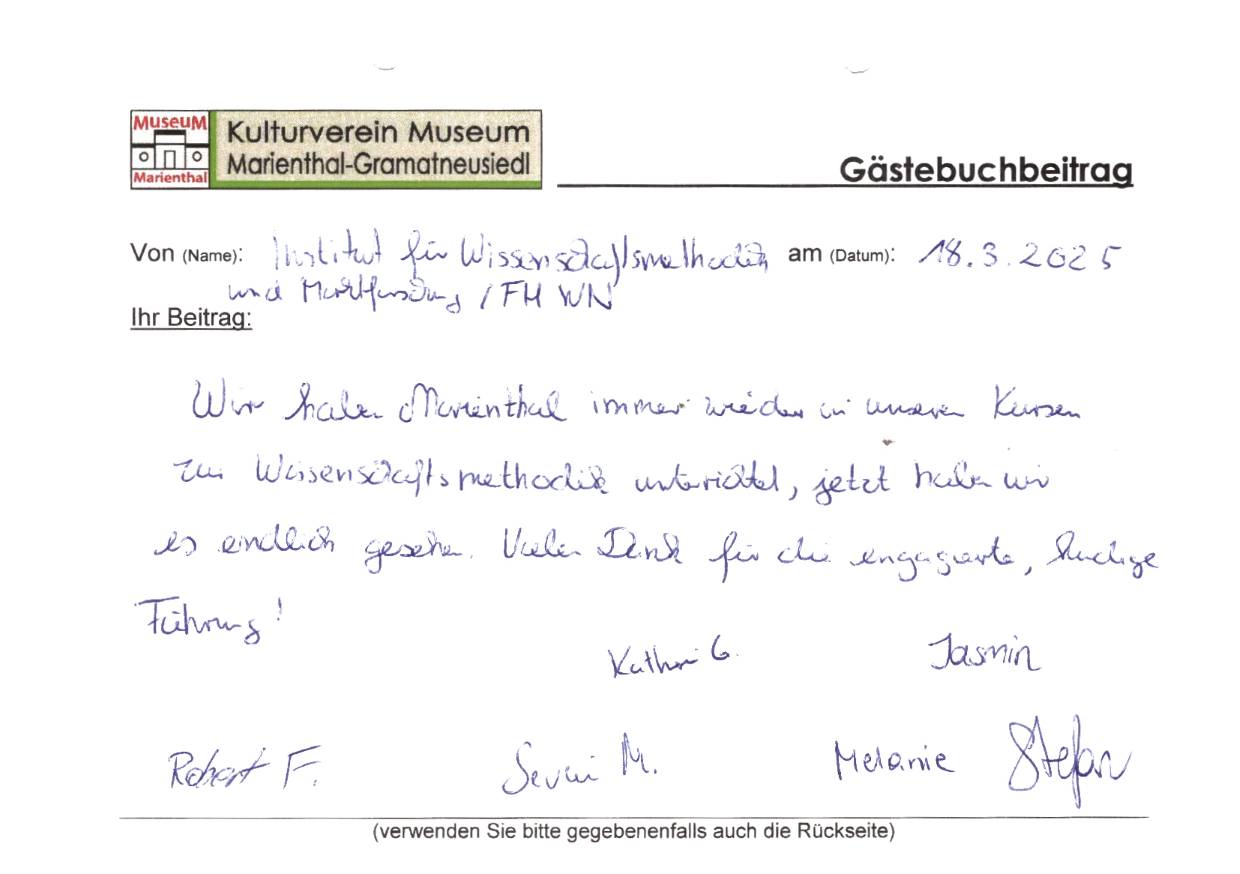 MUSEUM
Marienthal
Kulturverein Museum
Marienthal-Gramatneusiedl
Gästebuchbeitrag
Von (Name): Institut für Wissenschaftsmethodik am (Datum): 18.3.2025
und Marktforschung / FH WN
Ihr Beitrag:
Wir haben Marienthal immer wieder in unseren Kursen
zu Wissenschaftsmethodik unterrichtet, jetzt haben wir
es endlich gesehen. Vielen Dank für die engagierte,
Führung!
G. Jasmin
Robert F. M. Melanie Stefan
(verwenden Sie bitte gegebenenfalls auch die Rückseite)